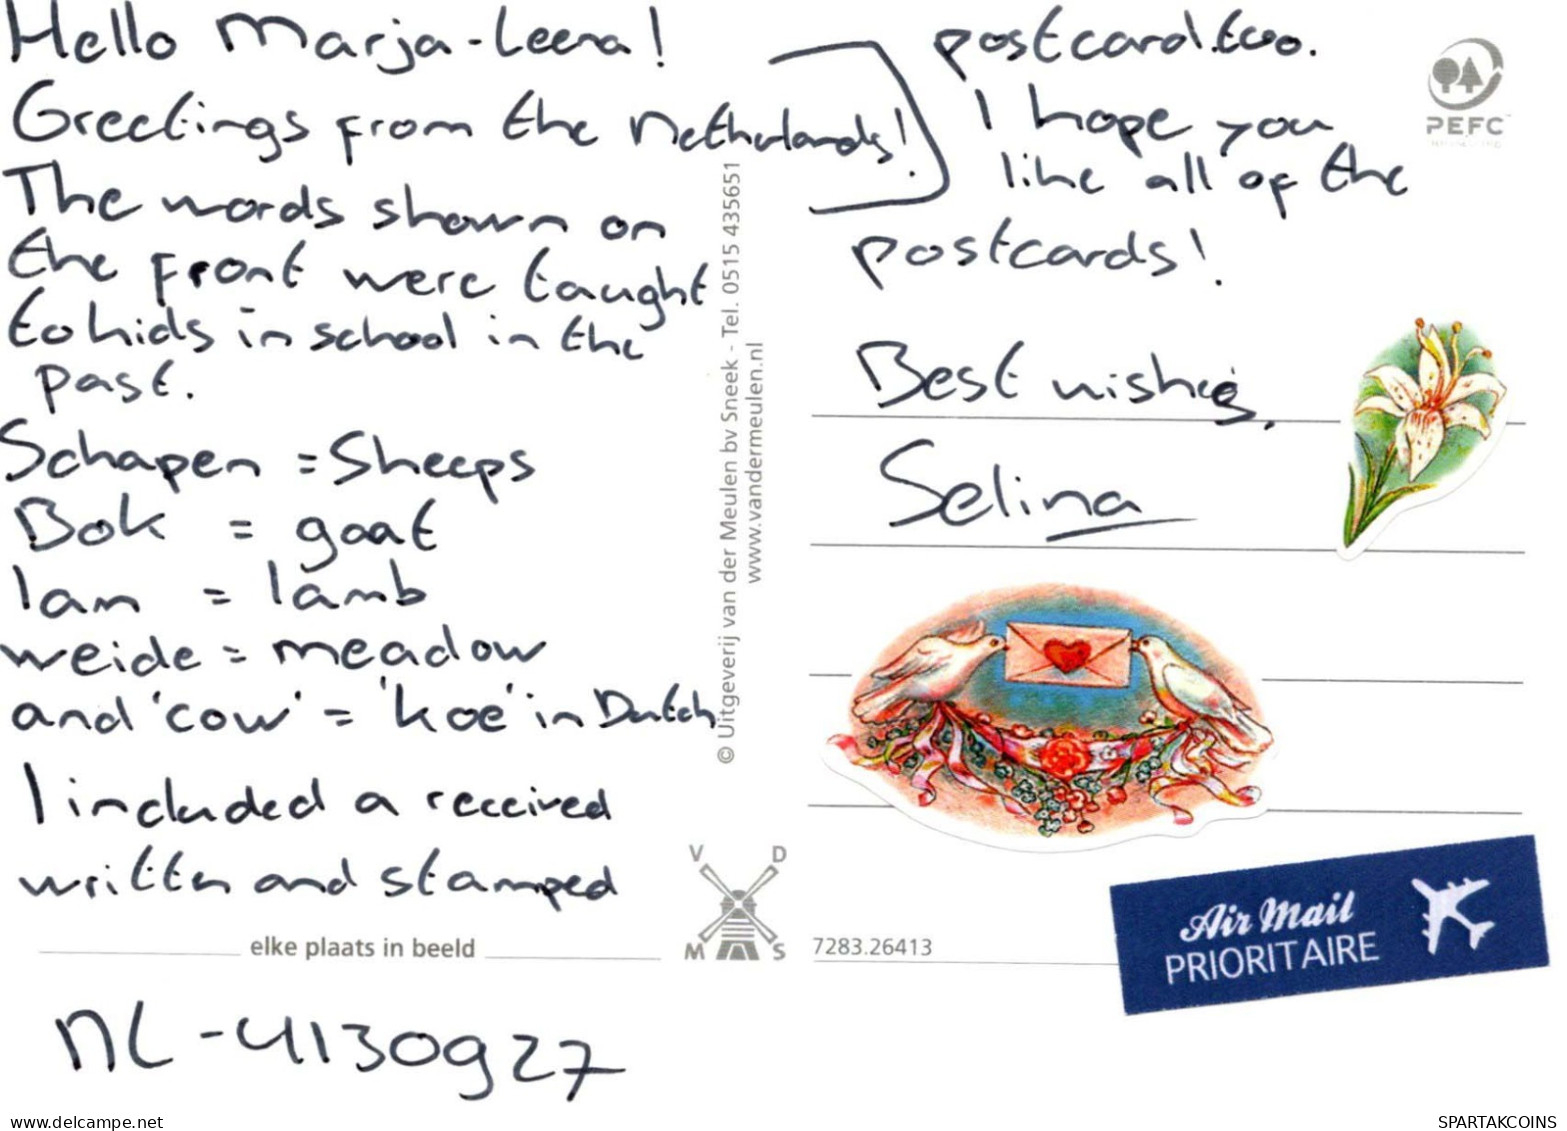 Hello Marja-Leena!
Greetings from the Netherlands!
The words shown on
the front were taught
to kids in school in the
past.
Schapen = Sheeps
Bok = goat
lam = lamb
weide = meadow
and 'cow' = 'koe' in Dutch.
I included a received
written and stamped
postcard too.
I hope you
like all of the
postcards!
Best wishes,
Selina
PEFC
© Uitgeverij van der Meulen bv Sneek - Tel. 0515 435651
www.vandermeulen.nl
V D
M S
elke plaats in beeld
7283.26413
Air Mail
PRIORITAIRE
NL-4130927
https://www.delcampe.net
SPARTAKCOINS